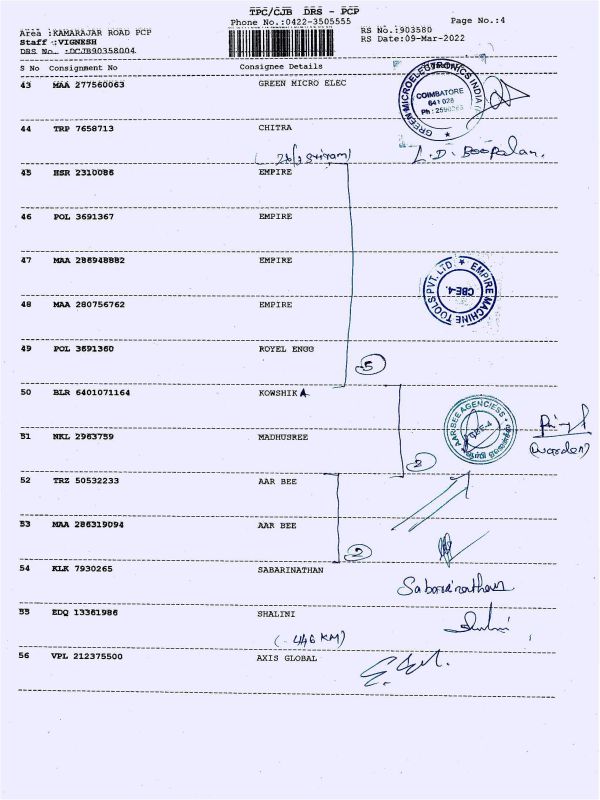 TPC/CJB DRS - PCP
Phone No.:0422-3505555 Page No.:4
Area :KAMARAJAR ROAD PCP RS No.:903580
Staff :VIGNESH RS Date:09-Mar-2022
DRS No. :DCJB90358004
S No Consignment No Consignee Details
43 MAA 277560063 GREEN MICRO ELEC
GREEN MICROELECTRONICS INDIA
COIMBATORE
641 028
44 TRP 7658713 CHITRA
L.D. Boopalan.
45 HSR 2310086 EMPIRE
46 POL 3691367 EMPIRE
47 MAA 286948882 EMPIRE
EMPIRE MACHINE TOOLS PVT. LTD.
CBE-4.
48 MAA 280756762 EMPIRE
49 POL 3691360 ROYEL ENGG
5
50 BLR 6401071164 KOWSHIKA
AARBEE AGENCIESS
CBE-4
51 NKL 2963759 MADHUSREE
(Warden)
2
52 TRZ 50532233 AAR BEE
53 MAA 286319094 AAR BEE
2
54 KLK 7930265 SABARINATHAN
Sabarinathan
55 EDQ 13361986 SHALINI
(-446 KM)
56 VPL 212375500 AXIS GLOBAL